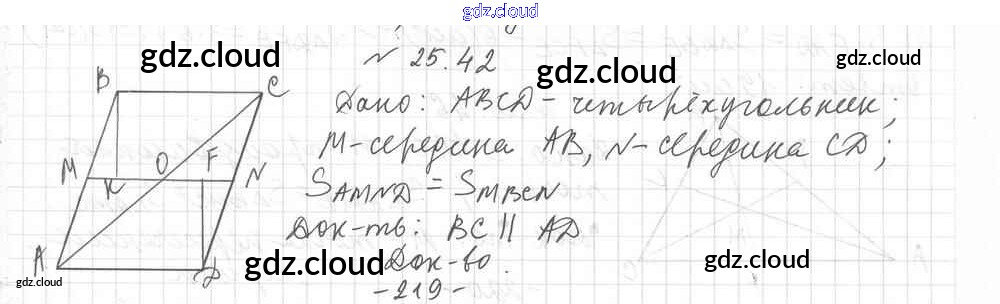 gdz.cloud
N 25.42
gdz.cloud gdz.cloud gdz.cloud
B C
Дано: ABCD - четырёхугольник;
M - середина AB, N - середина CD;
M K O F N
S AMND = S MBCN
Док-ть: BC || AD
A D
gdz.cloud gdz.cloud gdz.cloud gdz.cloud
Док-во.
- 219 -